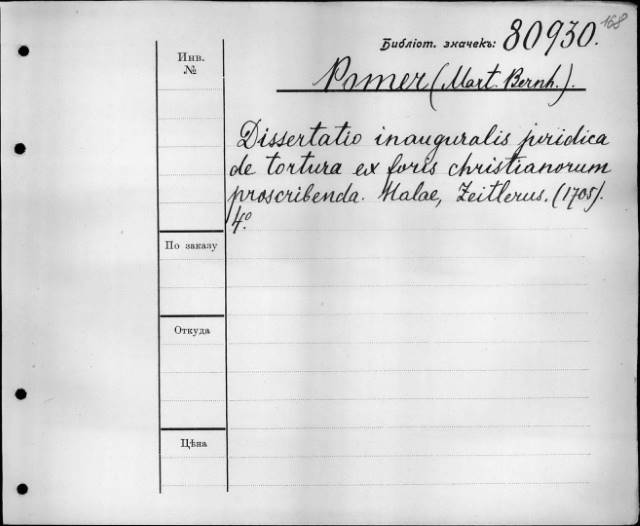 168
Библіот. значекъ: 80930.
Инв.
№
(Mart. Bernh.).
Dissertatio inauguralis juridica
de tortura ex foris christianorum
proscribenda. Halae, Zeitlerus. (1705).
4º
По заказу
Откуда
Цѣна